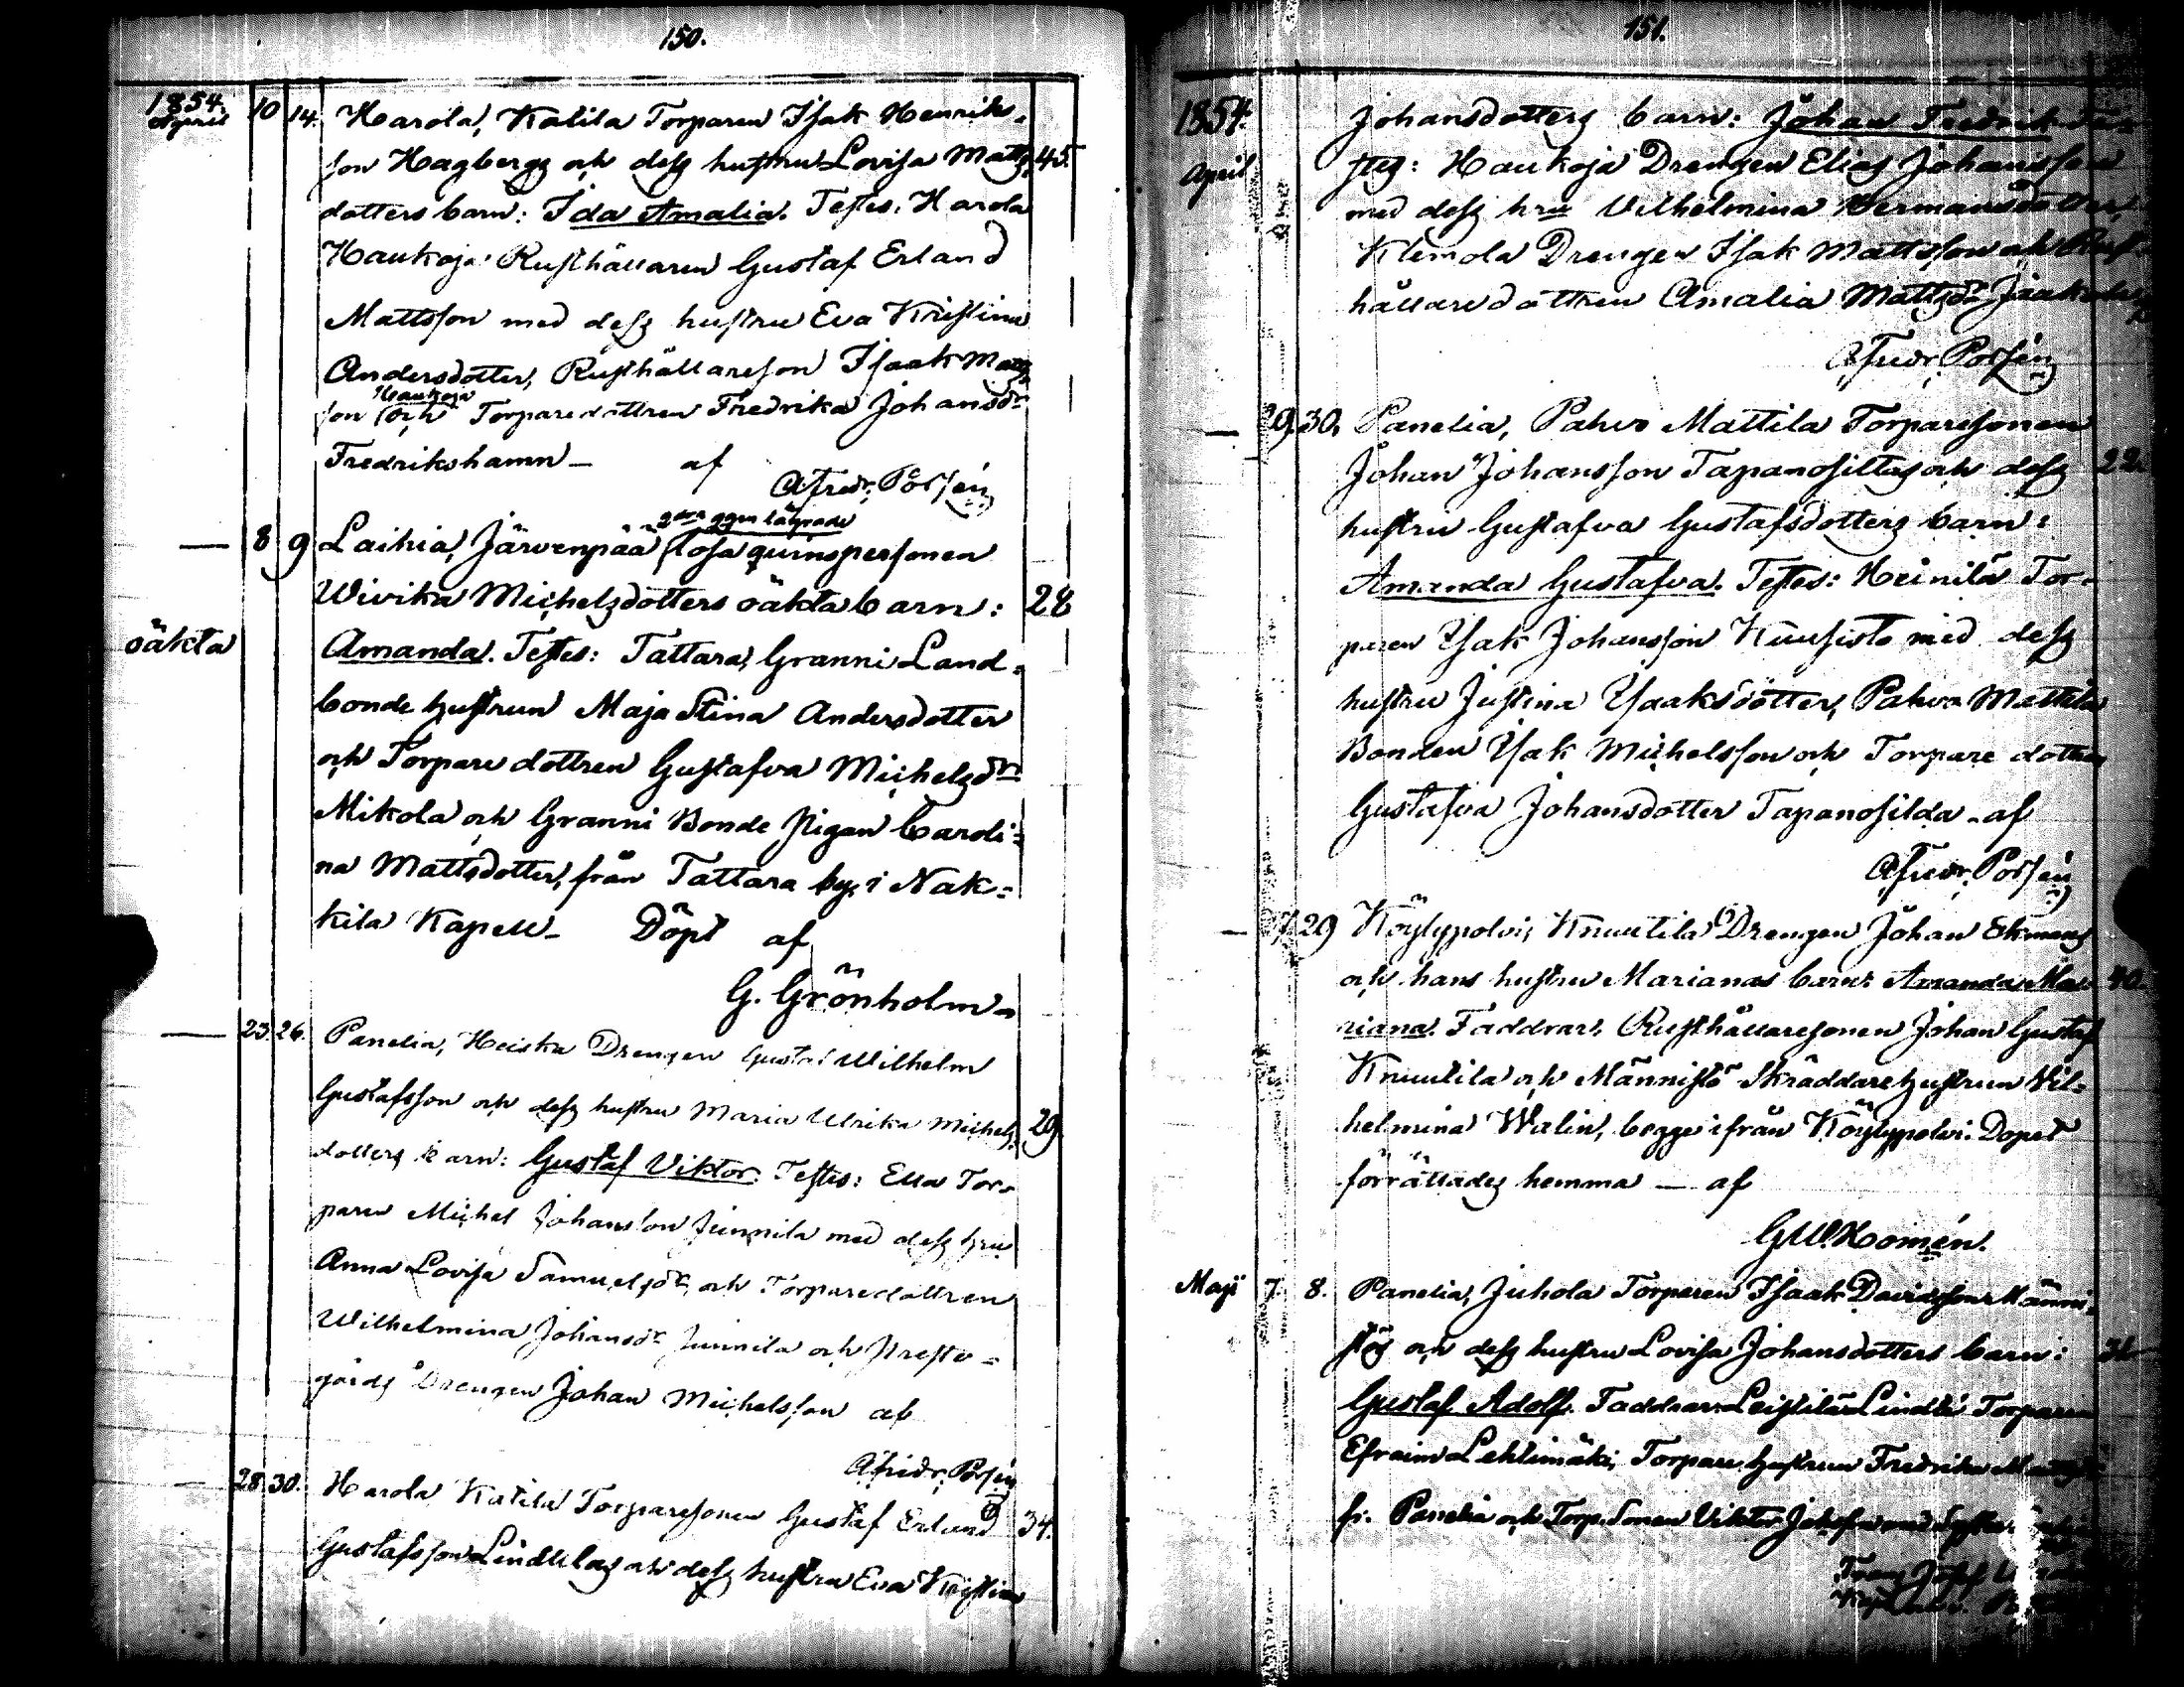 150.
1854.
April 10 14. Harola, Katila Torparen Isak Henrik-
son Hagbergs och dess hustru Lovisa Matts- 45
dotters barn: Ida Amalia. Testes: Harola
Haukoja Rusthållaren Gustaf Erland
Mattsson med dess hustru Eva Kristina
Andersdotter, Rusthållareson Isaak Matts-
son Haukoja och Torparedottren Fredrika Johansdr
Fredrikshamn — af
A Fredr. Porsén
— 8 9 Laihia, Järvenpää 2dra ggn lägrade lösa qvinspersonen
Wivika Michelsdotters oäkta barn: 28
oäkta Amanda. Testes: Tattara, Granni Land-
bonde hustrun Maja Stina Andersdotter
och Torpare dottren Gustafva Michelsdr
Mikola och Granni Bonde Pigan Caroli-
na Mattsdotter, från Tattara by i Nak-
kila Kapell — Döpt af
G. Grönholm
— 23. 26. Panelia, Heiska Drengen Gustaf Wilhelm
Gustafsson och dess hustru Maria Ulrika Michels- 29
dotters barn: Gustaf Viktor. Testes: Ella Tor-
paren Michel Johansson Junnila med dess hru
Anna Lovisa Samuelsdr och Torparedottren
Wilhelmina Johansdr Junnila och Preste-
gårds Drengen Johan Michelsson af
A Fredr. Porsén
— 28 30. Harola Katila Torparesonen Gustaf Erland 34.
Gustafsson och dess hustru Eva Kristina
151.
1854. Johansdotters barn: Johan Fredrik
April stes: Haukoja Drengen Elias Johansson
med dess hru Vilhelmina Hermansdotter
Klemola Drengen Isak Mattsson och Rust-
hållaredottren Amalia Mattsdr Jaakola
A Fredr. Porsén
— 29. 30. Panelia, Pahvo Mattila Torparesonen
Johan Johansson Tapanosiltas och dess 22
hustru Gustafva Gustafsdotters barn:
Amanda Gustafva. Testes: Heinilä Tor-
paren Isak Johansson Kuusisto med dess
hustru Justina Isaaksdotter, Pahvo Mattila
Bonden Isak Michelsson och Torpare dottren
Gustafva Johansdotter Tapanosilda — af
A Fredr. Porsén
— 27 29 Köylypolvi, Knuutila Drengen Johan Ekmans
och hans hustru Marianas barn: Amanda Ma- 40.
riana. Faddrar: Rusthållaresonen Johan Gustaf
Knuutila och Männistö Skräddare hustrun Vil-
helmina Walin, begge ifrån Köylypolvi. Dopet
förrättades hemma — af
G W. Homén.
Maji 7. 8. Panelia, Juhola Torparen Isaak Davidsson Männi-
stös och dess hustru Lovisa Johansdotters barn:
Gustaf Adolf. Faddrar: Leistilä Torparen
Efraim Lehtimäki, Torpare hustrun Fredrika
fr. Panelia och Torp. Sonen Viktor